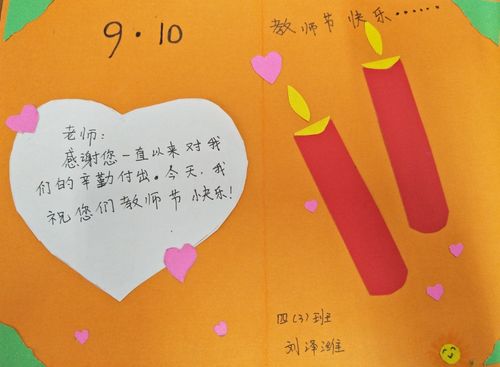 9·10
老师：
感谢您一直以来对我
们的辛勤付出。今天，我
祝您们教师节快乐！
教师节快乐……
四(3)班
刘泽潍